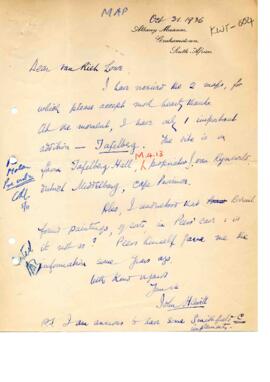 MAP
Oct 31. 1936
KWT-604
Albany Museum
Grahamstown
South Africa
Dear van Riet Lowe
I have received the 2 maps, for
which please accept most hearty thanks.
At the moment, I have only 1 important
addition — Tafelberg. The site is on
farm Tafelberg Hall,
M.4.13
district Middelburg, Cape Province.
Also, I understand that
found paintings, of sorts, in Peers' cave is
it not so? Peers himself gave me the
information some years ago.
With kind regards
Yours sin
John Hewitt
P.S. I am anxious to have some Smithfield C
implements.